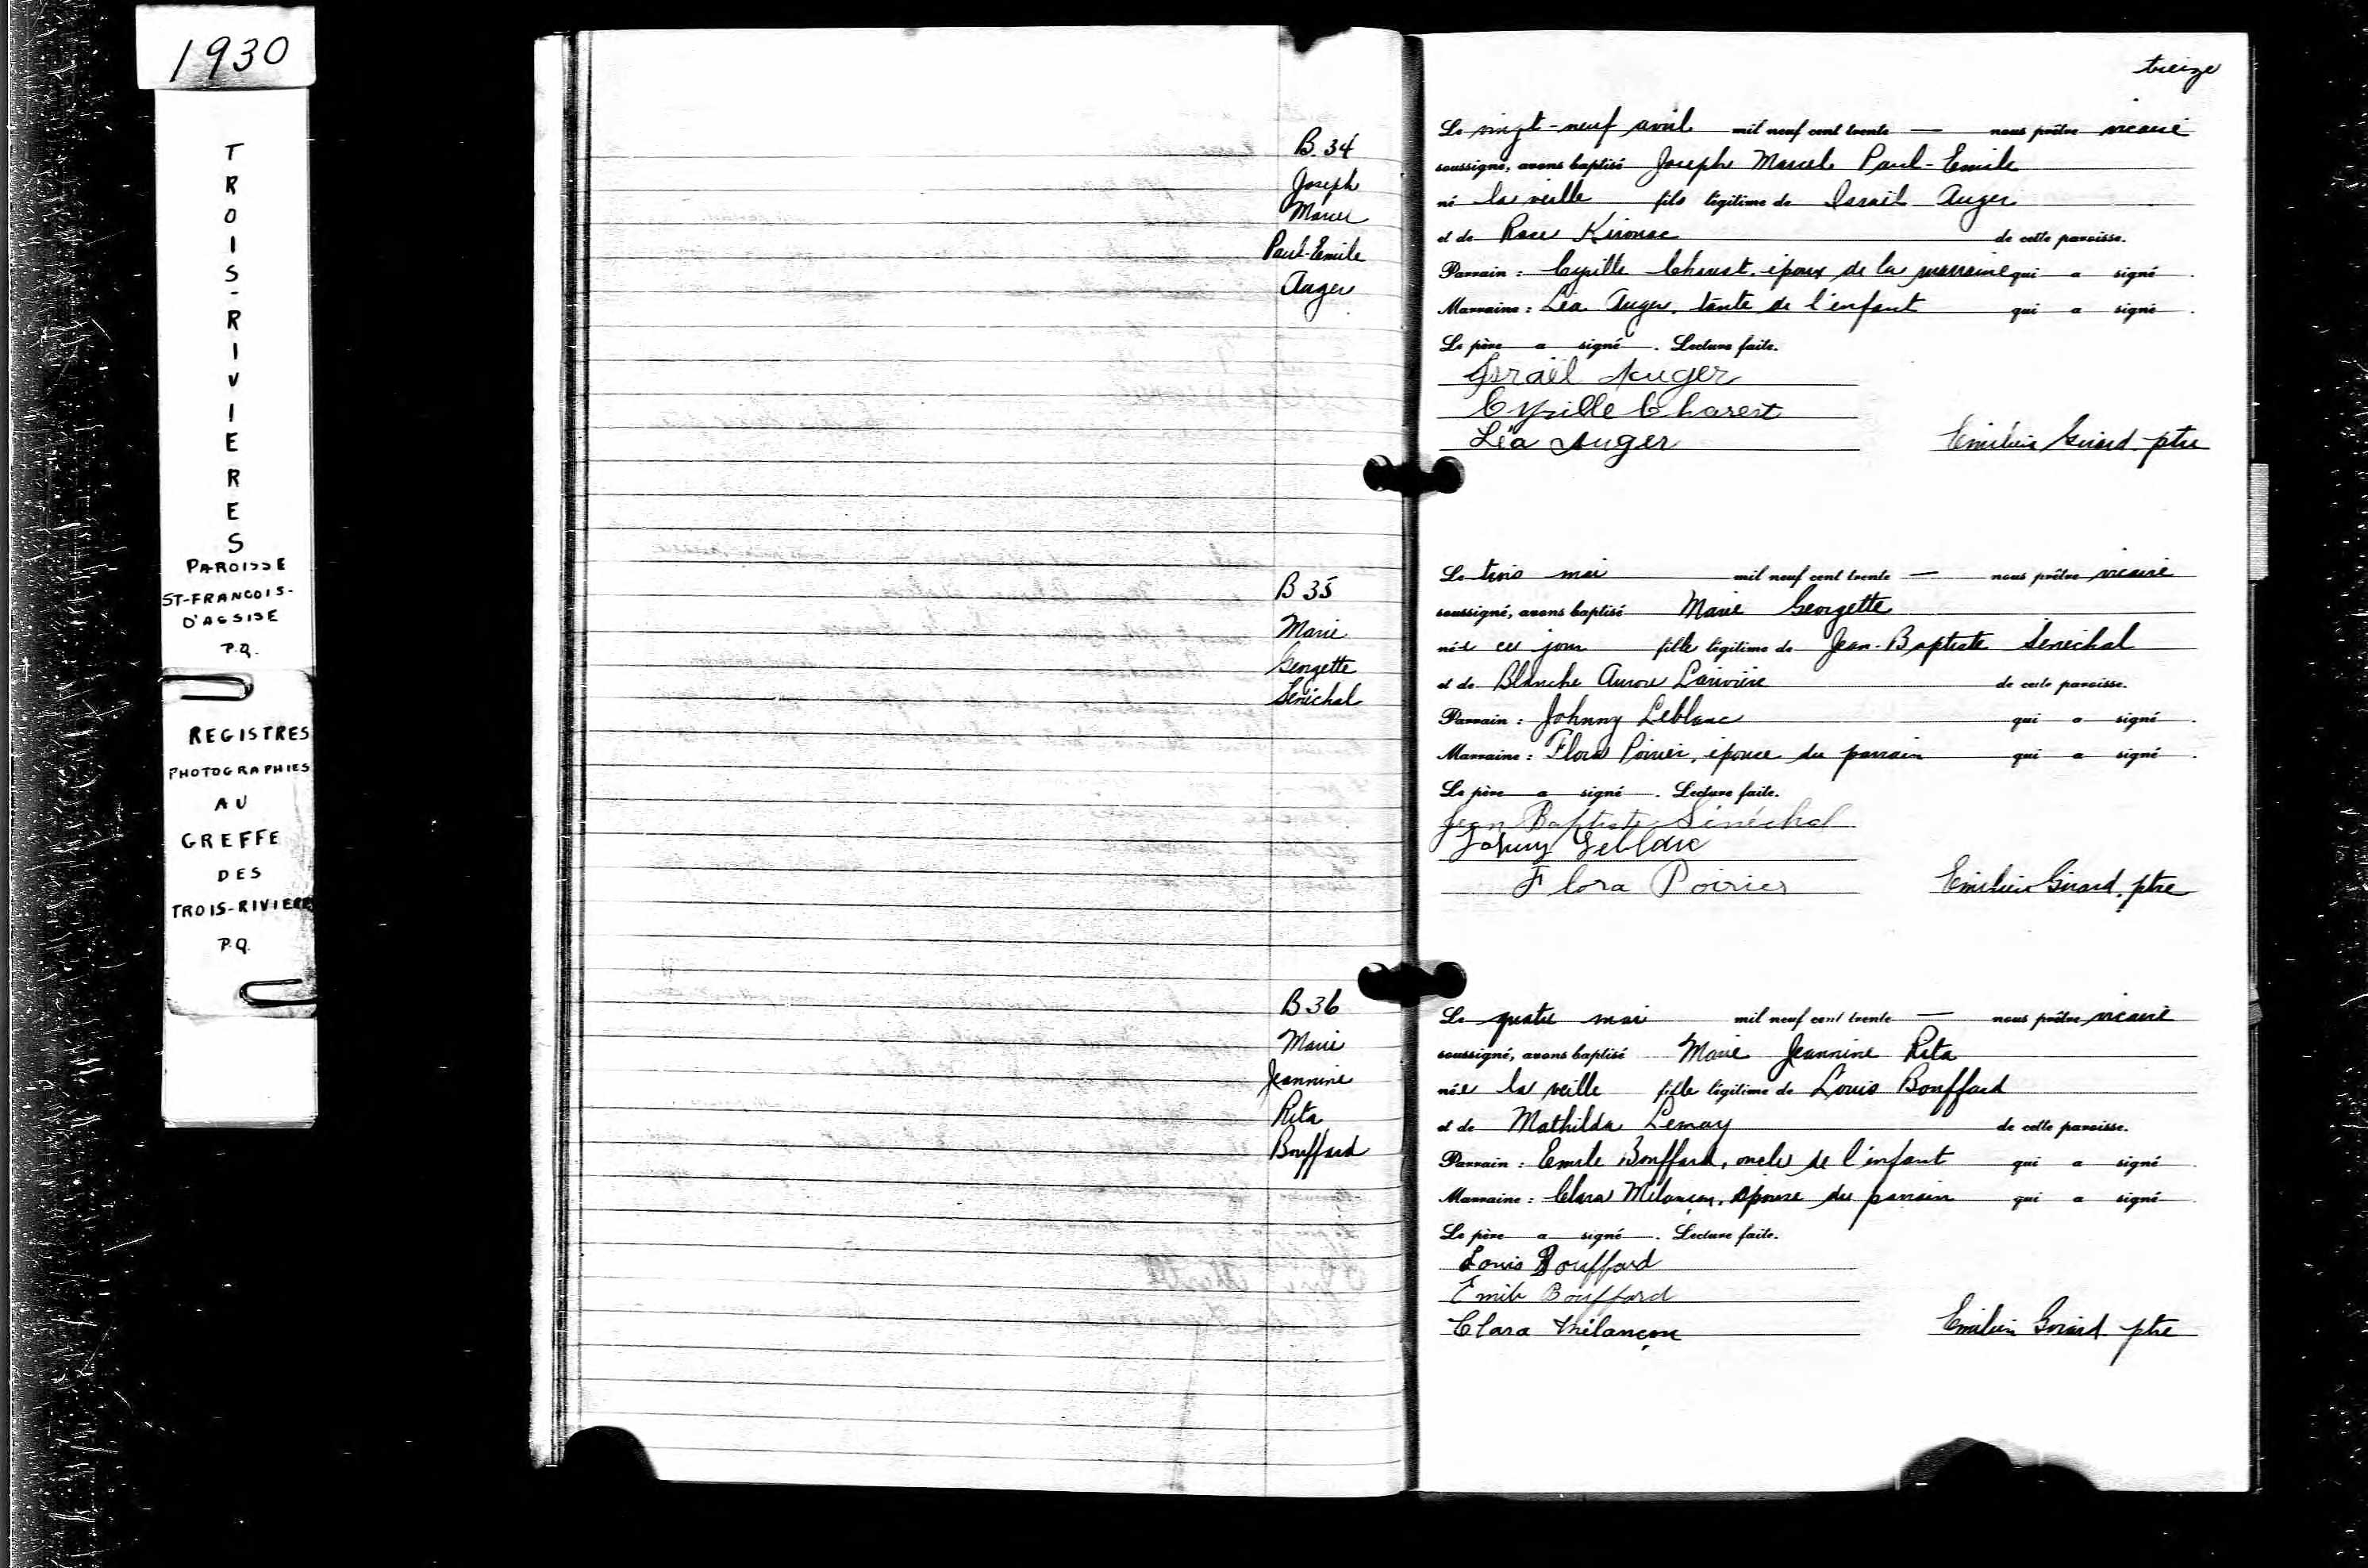 1930
TROIS-RIVIERES
PAROISSE
ST-FRANCOIS-
D'ASSISE
P.Q.
REGISTRES
PHOTOGRAPHIES
AU
GREFFE
DES
TROIS-RIVIERES
P.Q.
treize
B. 34
Joseph
Marcel
Paul-Emile
Auger
Le vingt-neuf avril mil neuf cent trente — nous prêtre vicaire
soussigné, avons baptisé Joseph Marcel Paul-Emile
né la veille fils légitime de Israël Auger
et de Rose Kirouac de cette paroisse.
Parrain : Cyrille Charest, époux de la marraine qui a signé.
Marraine : Léa Auger, tante de l'enfant qui a signé.
Le père a signé. Lecture faite.
Israël Auger
Cyrille Charest
Léa Auger Emilien Girard ptre
B 35
Marie
Georgette
Sénéchal
Le trois mai mil neuf cent trente — nous prêtre vicaire
soussigné, avons baptisé Marie Georgette
née ce jour fille légitime de Jean-Baptiste Sénéchal
et de Blanche Aurore Larivière de cette paroisse.
Parrain : Johnny Leblanc qui a signé.
Marraine : Flora Poirier, épouse du parrain qui a signé.
Le père a signé. Lecture faite.
Jean Baptiste Sénéchal
Johnny Leblanc
Flora Poirier Emilien Girard, ptre
B 36
Marie
Jeannine
Rita
Bouffard
Le quatre mai mil neuf cent trente — nous prêtre vicaire
soussigné, avons baptisé Marie Jeannine Rita
née la veille fille légitime de Louis Bouffard
et de Mathilda Lemay de cette paroisse.
Parrain : Emile Bouffard, oncle de l'enfant qui a signé
Marraine : Clara Mélançon, épouse du parrain qui a signé.
Le père a signé. Lecture faite.
Louis Bouffard
Emile Bouffard
Clara Mélançon Emilien Girard ptre